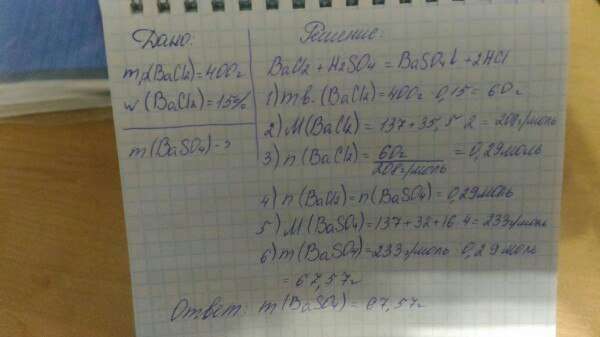 Дано:
m р(BaCl2)=400г
w (BaCl2)=15%
m(BaSO4)-?
Решение:
BaCl2 + H2SO4 = BaSO4↓ +2HCl
1) m в. (BaCl2)=400г · 0,15 = 60 г
2) M(BaCl2) = 137+35,5·2 = 208г/моль
3) n (BaCl2) = 60г / 208г/моль = 0,29моль
4) n (BaCl2) = n (BaSO4) = 0,29моль
5) M (BaSO4) = 137 + 32 + 16·4 = 233г/моль
6) m (BaSO4)=233г/моль · 0,29моль
= 67,57г
Ответ: m (BaSO4) = 67,57г